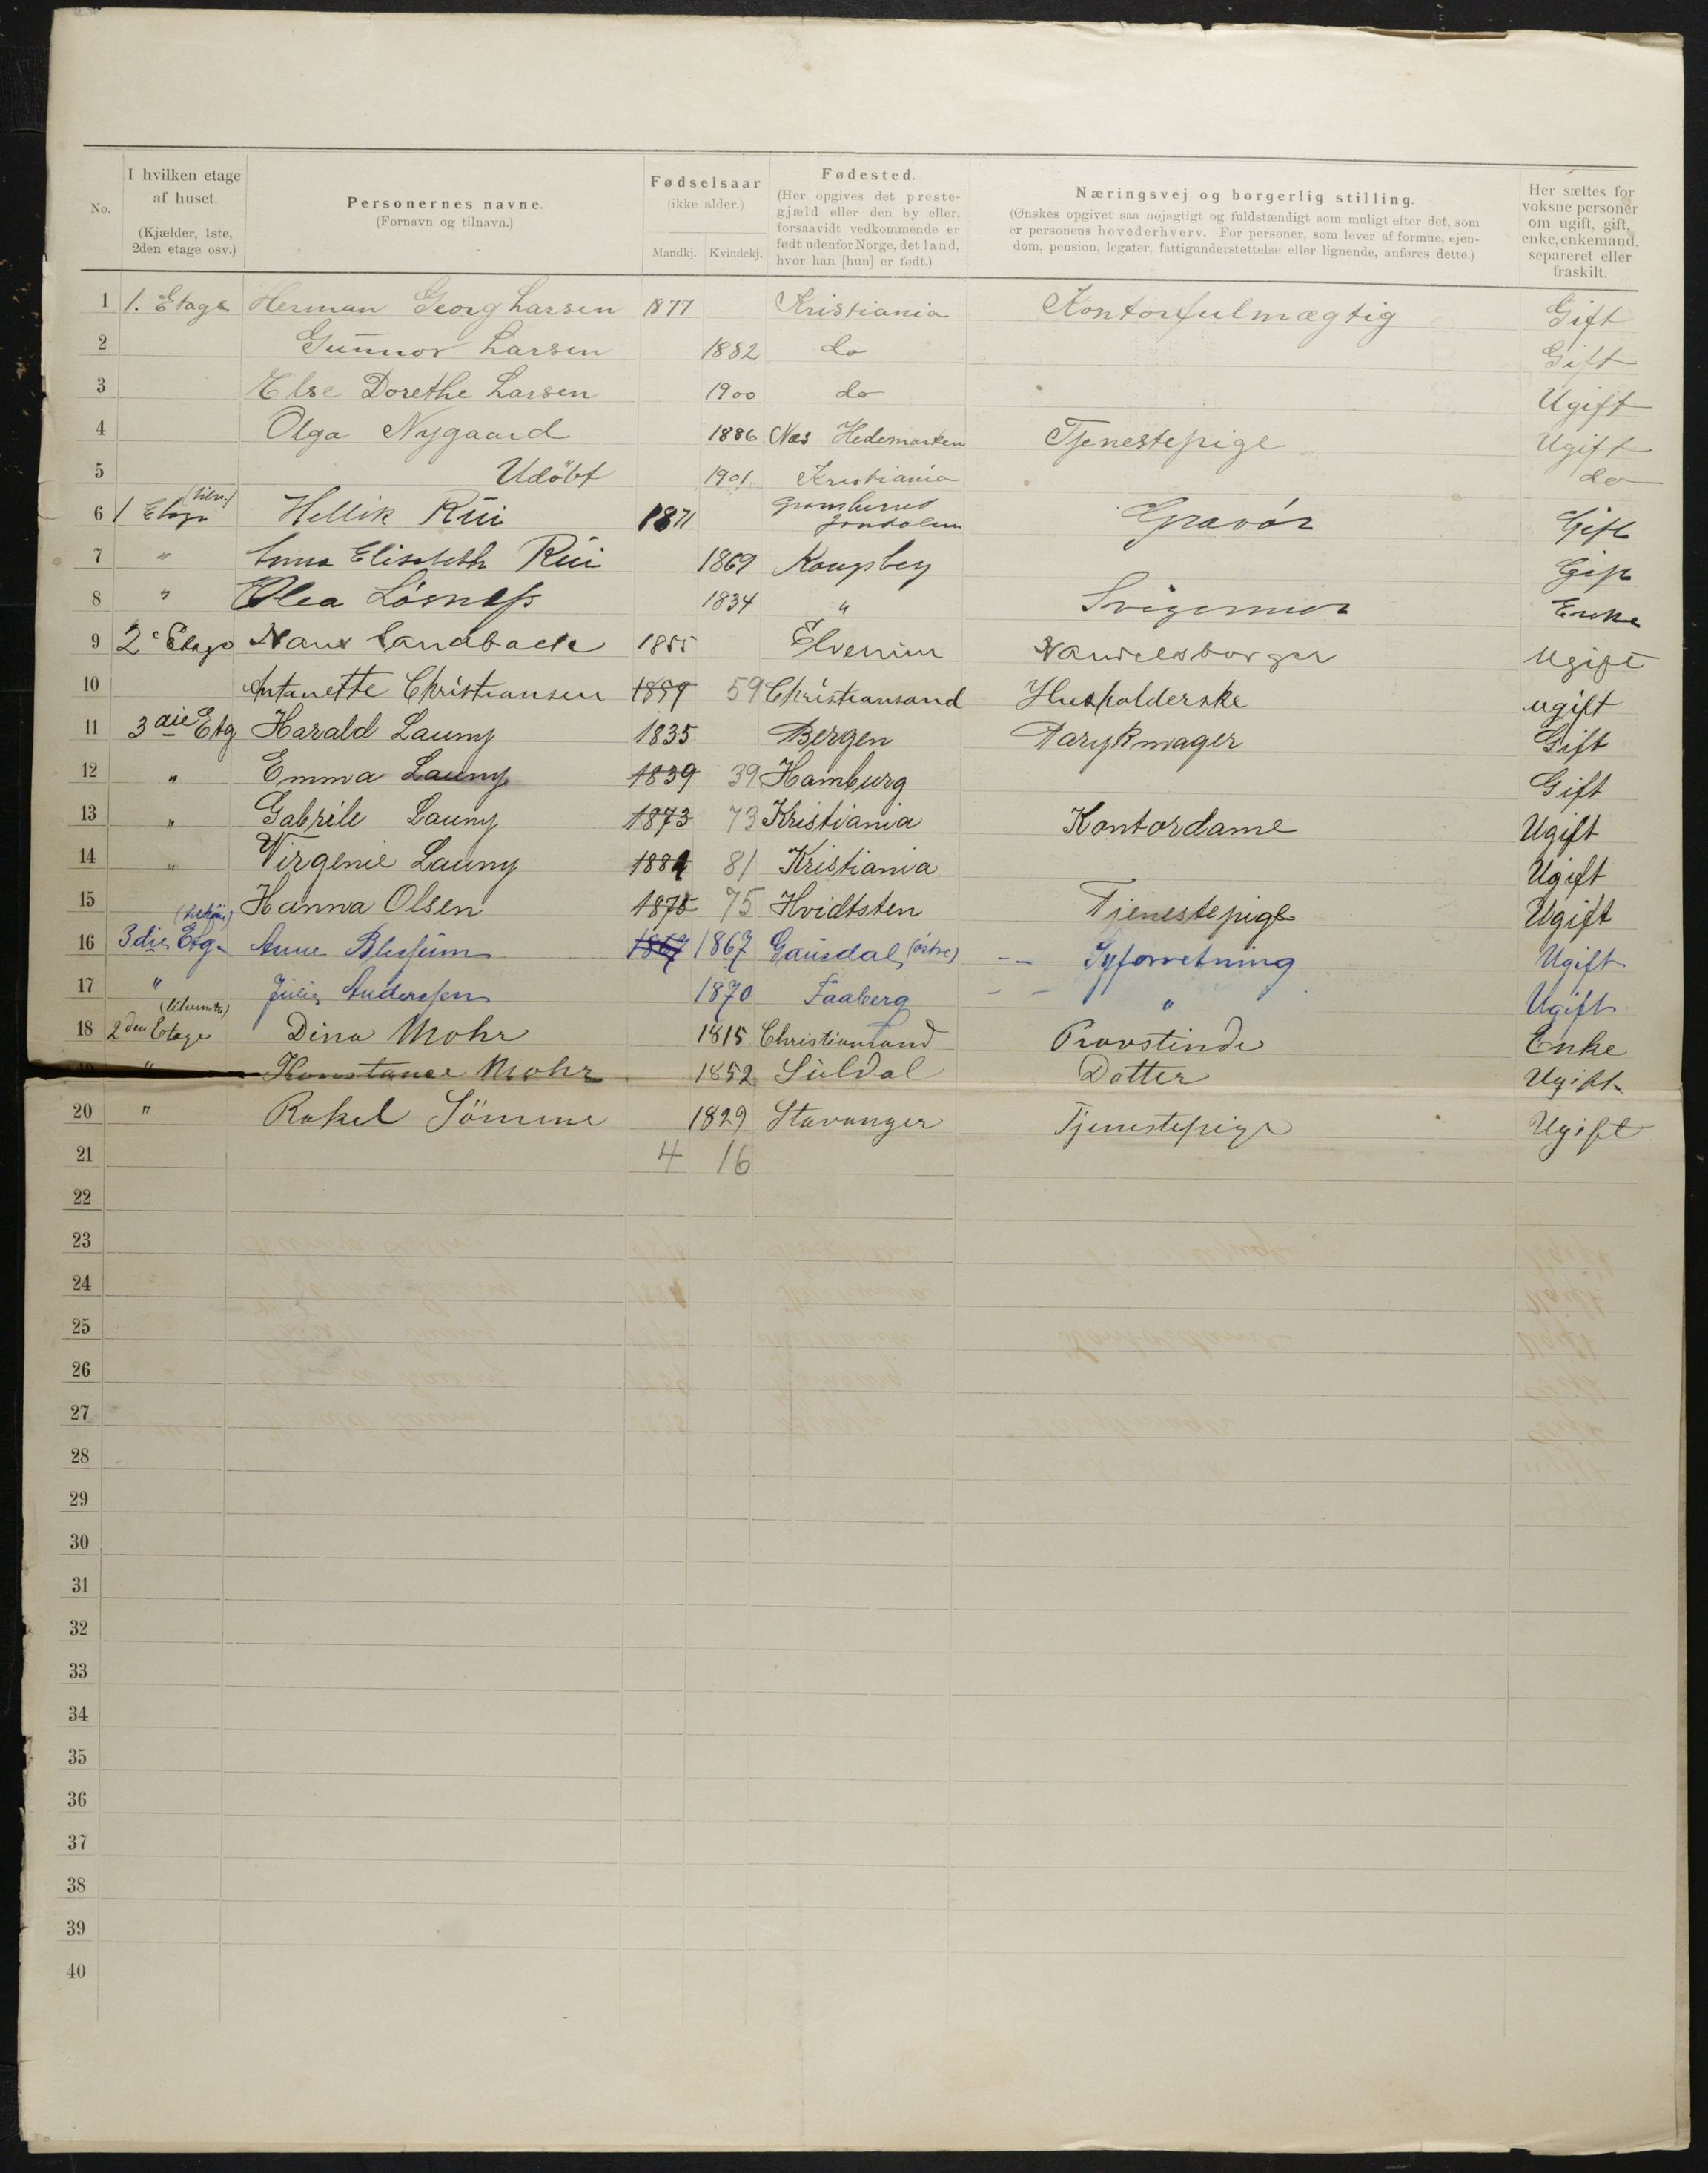 No.
I hvilken etage af huset. (Kjælder, 1ste, 2den etage osv.)
Personernes navne. (Fornavn og tilnavn.)
Fødselsaar (ikke alder.) Mandkj. Kvindekj.
Fødested. (Her opgives det prestegjæld eller den by eller, forsaavidt vedkommende er født udenfor Norge, det land, hvor han [hun] er født.)
Næringsvej og borgerlig stilling. (Ønskes opgivet saa nøjagtigt og fuldstændigt som muligt efter det, som er personens hovederhverv. For personer, som lever af formue, ejendom, pension, legater, fattigunderstøttelse eller lignende, anføres dette.)
Her sættes for voksne personer om ugift, gift, enke, enkemand, separeret eller fraskilt.
1 1. Etage Herman Georg Larsen 1877 Kristiania Kontorfulmægtig Gift
2 Gunnor Larsen 1882 do Gift
3 Else Dorethe Larsen 1900 do Ugift
4 Olga Nygaard 1886 Nes Hedemarken Tjenestepige Ugift
5 Udöbt 1901 Kristiania do
6 1 Etage Hellik Rui 1871 Gravör Gift
7 " Anna Elisabeth Rui 1869 Kongsberg Gift
8 " Olea Lösness 1834 " Svigermor Enke
9 2 Etage Hans Sandback 1855 Elverum Handelsborger ugift
10 Antonette Christiansen 1859 59 Christiansand Husholderske ugift
11 3die Etg Harald Launy 1835 Bergen Parykmager Gift
12 " Emma Launy 1839 39 Hamburg Gift
13 " Gabriele Launy 1873 73 Kristiania Kontordame Ugift
14 " Virgenie Launy 1881 81 Kristiania Ugift
15 Hanna Olsen 1875 75 Hvidtsten Tjenestepige Ugift
16 3die Etg. Anne 1867 1867 Gausdal (östre) -- Syforretning Ugift
17 " Julie Anderssen 1870 Faaberg -- " Ugift
18 2den Etage Dina Mohr 1815 Christiansand Provstinde Enke
19 " Konstance Mohr 1852 Suldal Datter Ugift
20 " Rakel Sömme 1829 Stavanger Tjenestepige Ugift
21 4 16
22
23
24
25
26
27
28
29
30
31
32
33
34
35
36
37
38
39
40